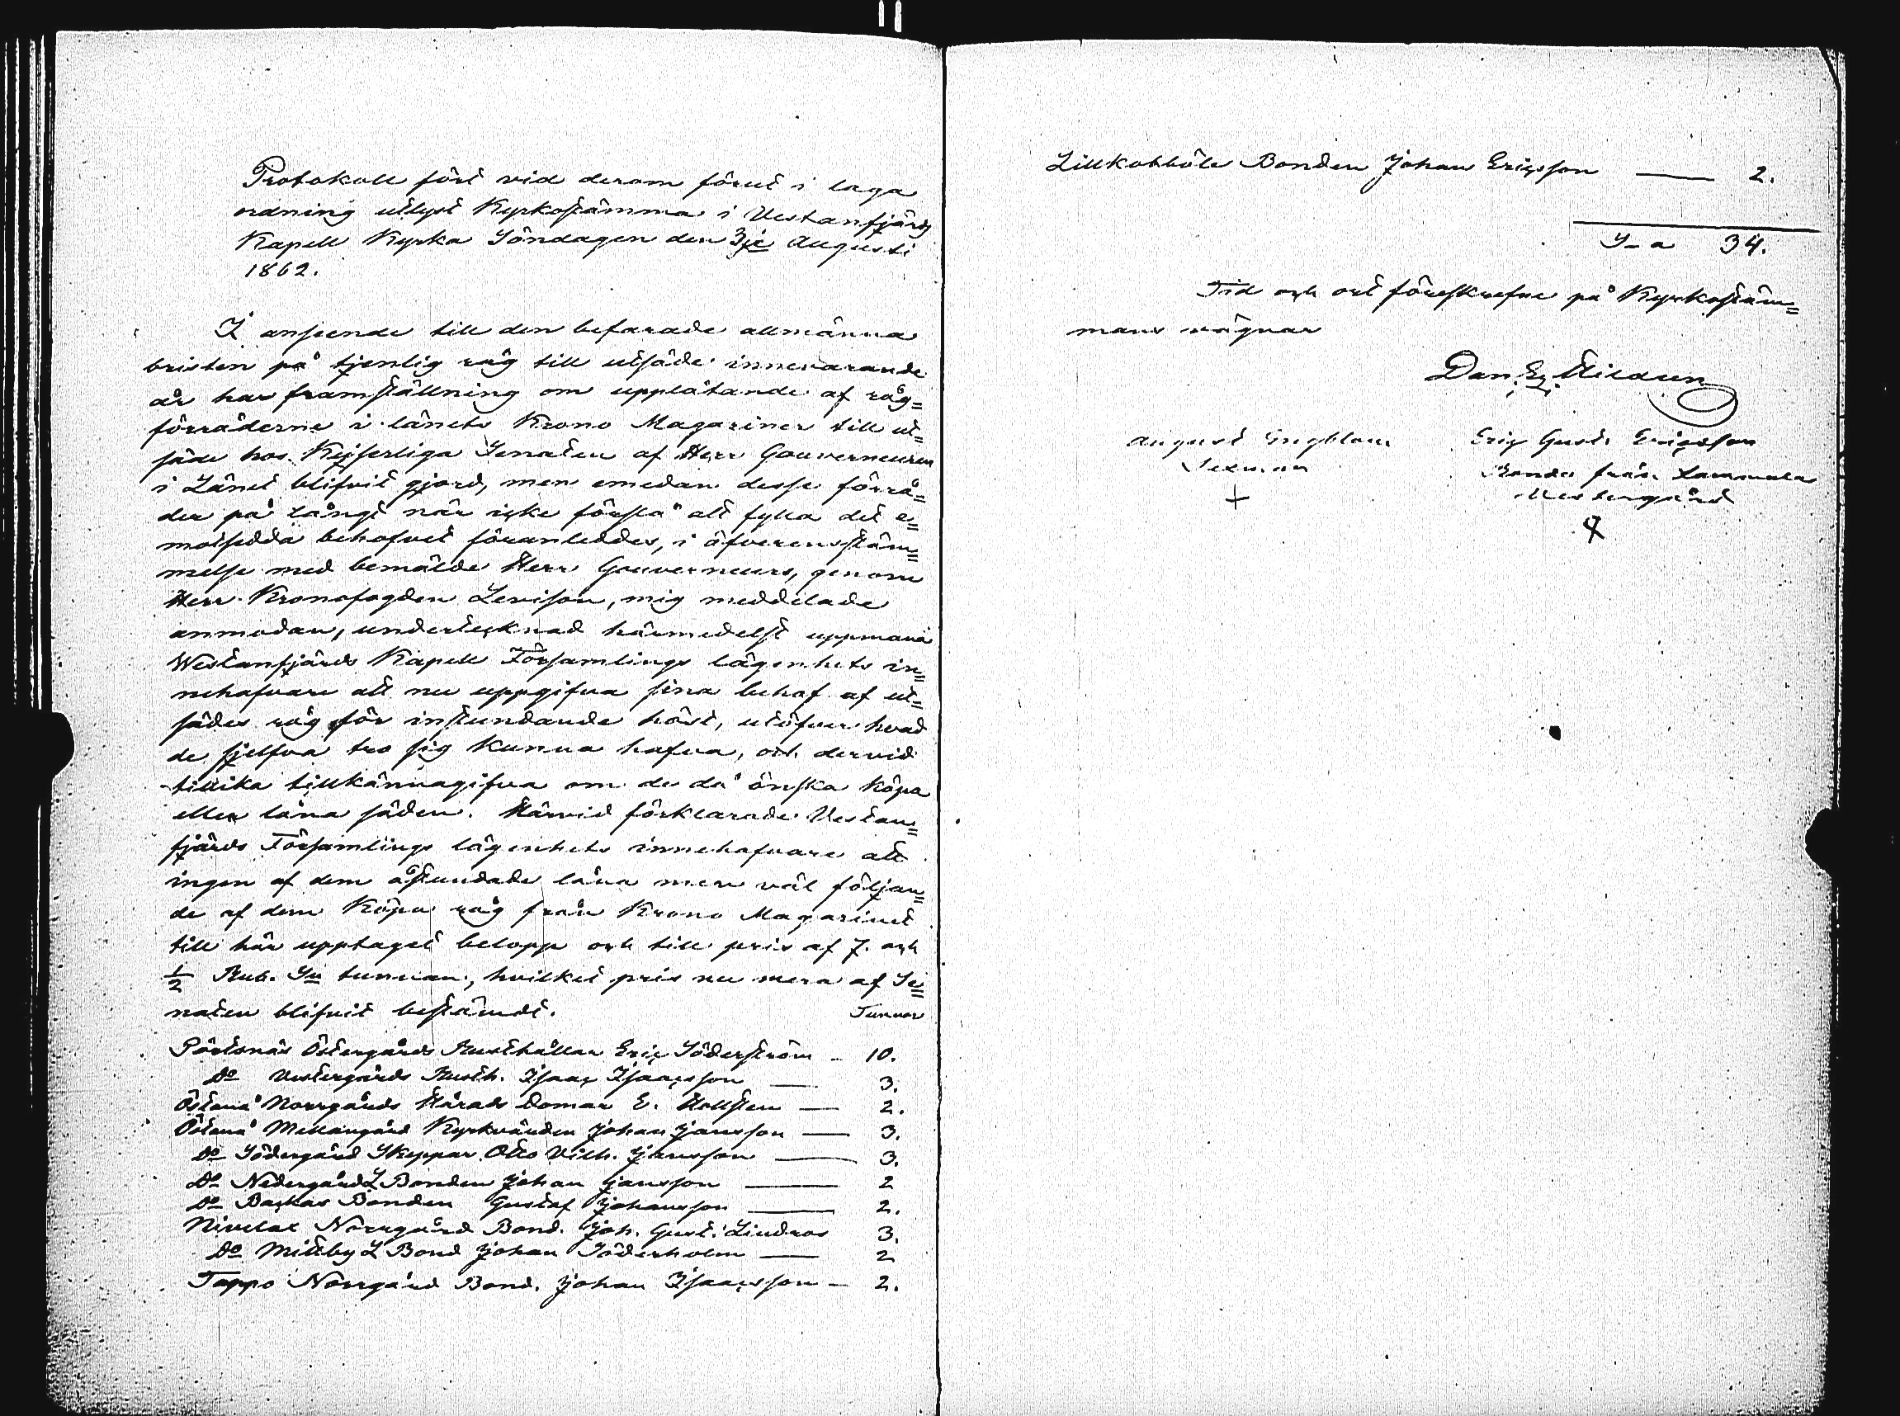 Protokoll fört vid derom förut i laga
ordning utlyst Kyrkostämma i Vestanfjärds
Kapell Kyrka Söndagen den 3je Augusti
1862.
I anseende till den befarade allmänna
bristen på tjenlig råg till utsäde innevarande
år har framställning om upplåtande af råg=
förråderne i länets Krono Magaziner till ut=
säde hos Kejserliga Senaten af Herr Gouverneuren
i Länet blifvit gjord, men emedan desse förrå=
der på långt när icke förslå att fylla det e=
motsedda behofvet föranleddes, i öfverensstäm=
melse med bemälde Herr Gouverneurs, genom
Herr Kronofogden Levison, mig meddelade
anmodan, undertecknad härmedelst uppmana
Westanfjärds Kapell Församlings lägenhets in=
nehafvare att nu uppgifva sina behof af ut=
sädes råg för instundande höst, utöfver hvad
de sjelfva tro sig kunna hafva, och dervid
tillika tillkännagifva om de då önska köpa
eller låna säden. Härvid förklarade Vestan=
fjärds Församlings lägenhets innehafvare att
ingen af dem åstundade låna men väl följan=
de af dem Köpa råg från Krono Magazinet
till här upptaget belopp och till pris af 7. och
1/2 Rub. Sr tunnan, hvilket pris nu mera af Se=
naten blifvit bestämdt.
Tunnor
Pörtsnäs Östergårds Rusthållar Eric Söderström - 10.
Do Vestergårds Rusth. Isaac Isaacsson — 3.
Östanå Norrgårds Härads Domar E. Hollsten — 2.
Östanå Mellangård Kyrkvärden Johan Jansson — 3.
Do Södergård Skeppar Otto Vilh. Jansson — 3.
Do Nedergård Bonden Johan Jansson — 2
Do Backas Bonden Gustaf Johansson — 2.
Nivelax Norrgård Bond. Joh. Gust. Lindros 3.
Do Mittby Bond Johan Söderholm — 2
Tappo Norrgård Bond. Johan Isaacsson - 2.
Lillkobböle Bonden Johan Ericsson — 2.
S-a 34.
Tid och ort föreskrefne på Kyrkostäm=
mans vägnar
Dan. Ej.
August Engblom
Sexman
+
Eric Gust. Ericsson
Bonde från Lammala
Vestergård